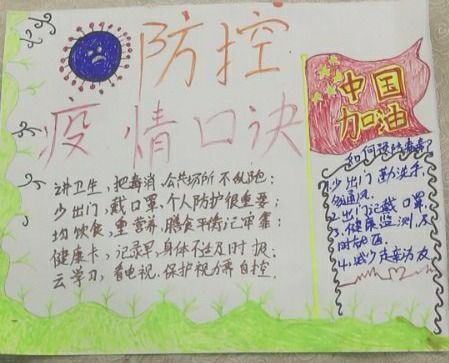 防控
疫情口诀
中国
加油
讲卫生，把毒消，公共场所不乱跑；
少出门，戴口罩，个人防护很重要；
均饮食，重营养，膳食平衡记牢靠；
健康卡，记录早，身体不适及时报。
云学习，看电视，保护视力需自控。
如何预防病毒？
1.少出门 勤洗手，
多通风。
2.出门记戴口罩
3.健康监测，及
时就医
4.减少走亲访友